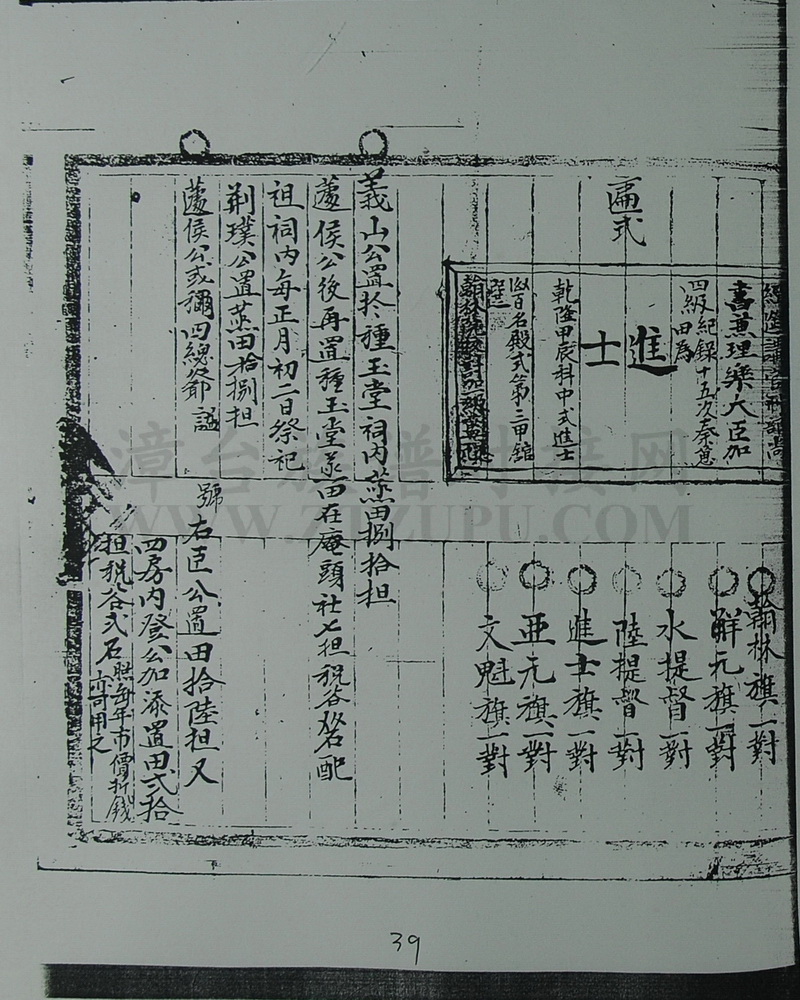 匾式
書兼理樂大臣加
四級紀錄十五次秦為
進士
乾隆甲辰科中式進士
百名殿式第三甲
翰林旗一對
解元旗一對
水提督一對
陸提督一對
進士旗一對
亞元旗一對
文魁旗一對
義山公置於種玉堂祠內蒸田捌拾担
蘧侯公後再置種玉堂蒸田在庵頭社七担税谷石配
祖祠內每正月初二日祭祀
荆璞公置蒸田拾捌担
蘧侯公式彌四總爺諡
號右臣公置田拾陸担又
四房內登公加添置田弍拾
担税谷弍石照每年市價折錢
亦可用之
漳台族譜对接网
WWW.ZTZUPU.COM
39